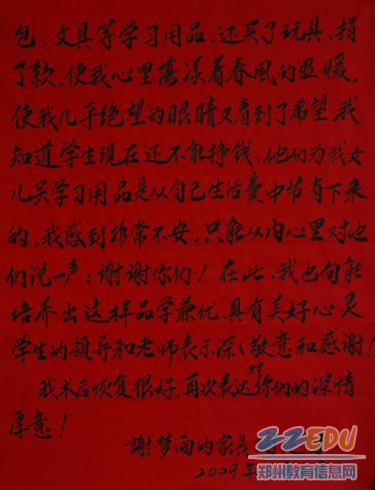 包、文具等学习用品,还买了玩具、捐
了款,使我心里荡漾着春風的温暖,
使我几乎绝望的眼睛又看到了希望。我
知道学生现在还不能挣钱,他们为我女
儿买学习用品是从自己生活费中节省下来
的,我感到非常不安,只能从内心里对他
们说一声:谢谢你们!在此,我也向能
培养出这样品学兼优,具有美好心灵
学生的领导和老师表示深深敬意和感谢!
我术后恢复很好,再次表达对你们的深情
厚意!
謝梦雨的家长
2009年
22EDU
郑州教育信息网